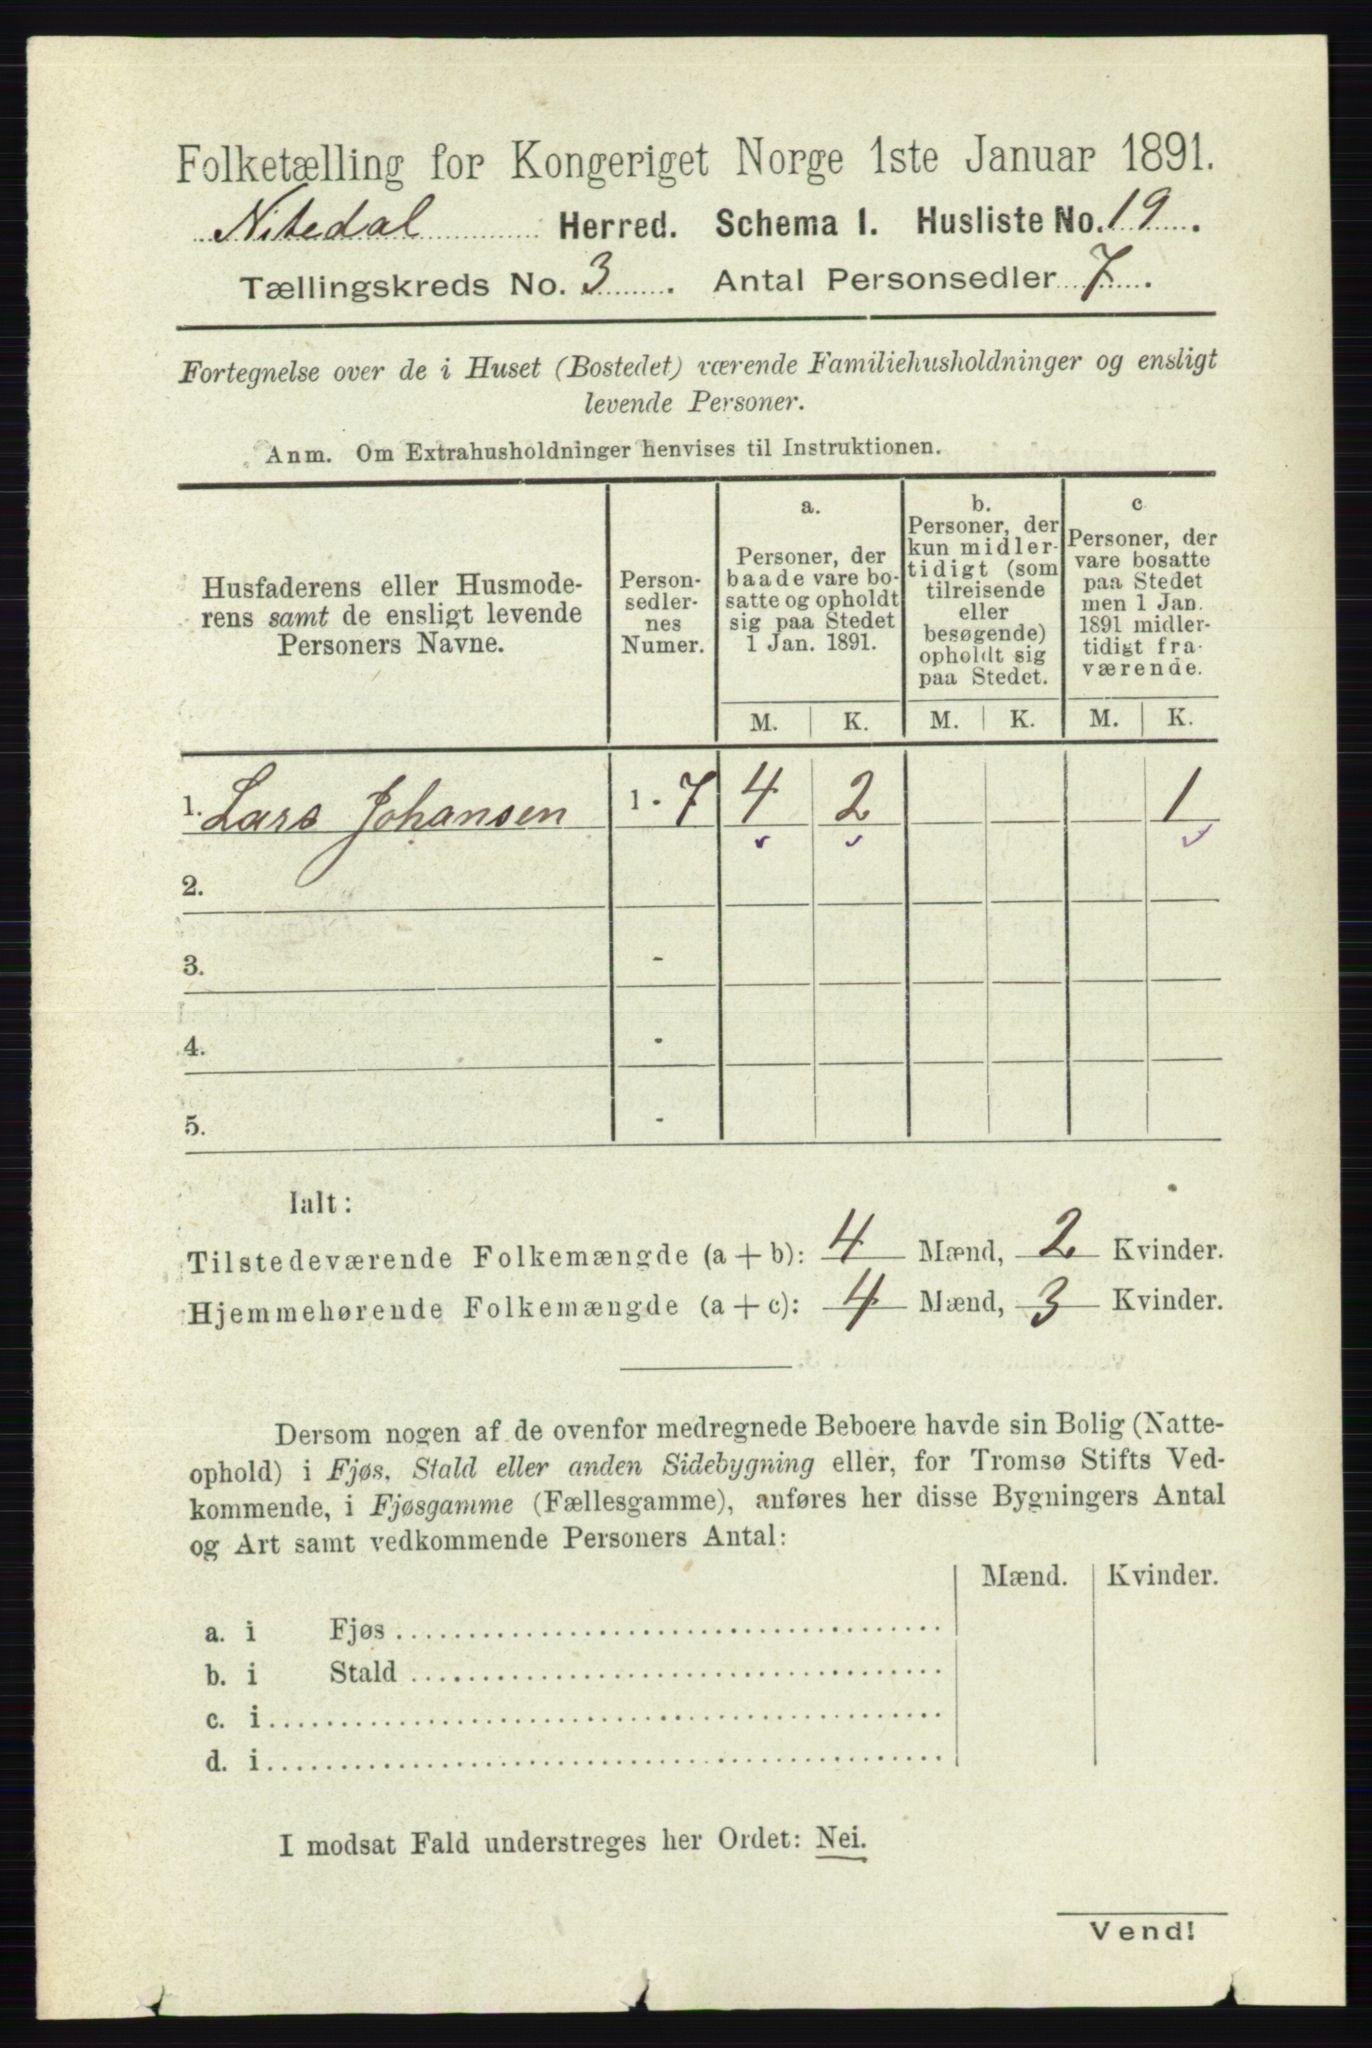 Folketælling for Kongeriget Norge 1ste Januar 1891.
Nitedal Herred. Schema 1. Husliste No. 19.
Tællingskreds No. 3. Antal Personsedler 7.
Fortegnelse over de i Huset (Bostedet) værende Familiehusholdninger og ensligt
levende Personer.
Anm. Om Extrahusholdninger henvises til Instruktionen.
Husfaderens eller Husmode-
rens samt de ensligt levende
Personers Navne.
Person-
sedler-
nes
Numer.
a.
Personer, der
baade vare bo-
satte og opholdt
sig paa Stedet
1 Jan. 1891.
b.
Personer, der
kun midler-
tidigt (som
tilreisende
eller
besøgende)
opholdt sig
paa Stedet.
c
Personer, der
vare bosatte
paa Stedet
men 1 Jan.
1891 midler-
tidigt fra-
værende.
M. K. M. K. M. K.
1. Lars Johansen 1 - 7 4 2 1
2.
3. -
4. -
5. -
Ialt:
Tilstedeværende Folkemængde (a + b): 4 Mænd, 2 Kvinder.
Hjemmehørende Folkemængde (a + c): 4 Mænd, 3 Kvinder.
Dersom nogen af de ovenfor medregnede Beboere havde sin Bolig (Natte-
ophold) i Fjøs, Stald eller anden Sidebygning eller, for Tromsø Stifts Ved-
kommende, i Fjøsgamme (Fællesgamme), anføres her disse Bygningers Antal
og Art samt vedkommende Personers Antal:
Mænd. Kvinder.
a. i Fjøs
b. i Stald
c. i
d. i
I modsat Fald understreges her Ordet: Nei.
Vend!